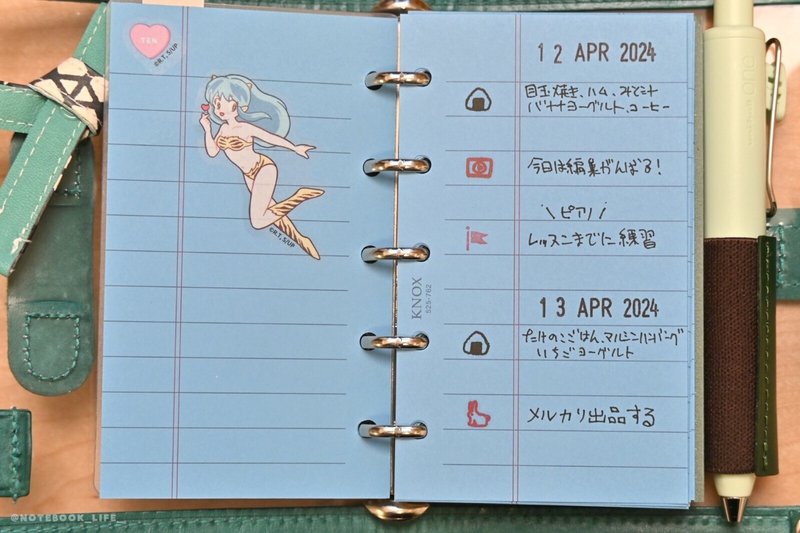 TEN
©R.T, S/UP
©R.T, S/UP
12 APR 2024
目玉焼き、ハム、みそ汁
バナナヨーグルト、コーヒー
今日は編集がんばる!
\ピアノ/
レッスンまでに練習
KNOX
525-762
13 APR 2024
たけのこごはん、マルシンハンバーグ
いちごヨーグルト
メルカリ出品する
@NOTEBOOK_LIFE_